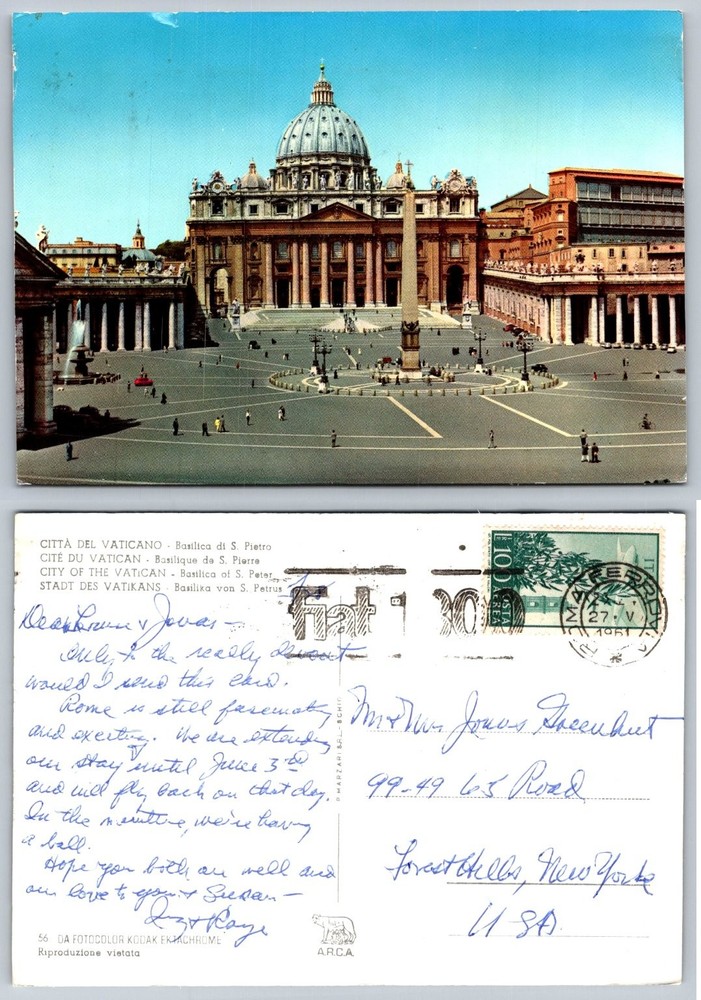 CITTÀ DEL VATICANO - Basilica di S. Pietro
CITÉ DU VATICAN - Basilique de S. Pierre
CITY OF THE VATICAN - Basilica of S. Peter
STADT DES VATIKANS - Basilika von S. Petrus
Fiat 1300
100
POSTA AEREA
ROMA FERROVIA
27. V
1961
Dear & Jonas -
Only to the really devout
would I send this card.
Rome is still fascinating
and exciting. We are extending
our stay until June 3rd
and will fly back on that day.
In the meantime, we're having
a ball.
Hope you both are well and
our love to you & Susan -
& Kaye
Mr & Mrs Jonas Greenhut
99-49 63 Road
Forest Hills, New York
USA
P. MARZARI S.R.L. - SCHIO
56 DA FOTOCOLOR KODAK EKTACHROME
Riproduzione vietata
A.R.C.A.